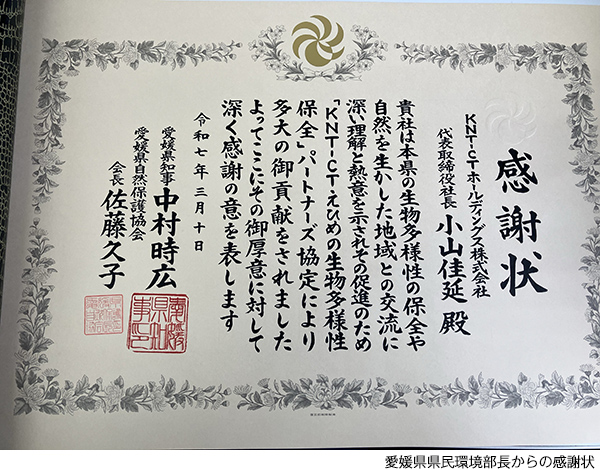 感謝状
KNT-CTホールディングス株式会社
代表取締役社長 小山佳延 殿
貴社は本県の生物多様性の保全や
自然を生かした地域との交流に
深い理解と熱意を示されその促進のため
「KNT-CTえひめの生物多様性
保全」パートナーズ協定により
多大の御貢献をされました
よってここにその御厚意に対して
深く感謝の意を表します
令和七年三月十日
愛媛県知事 中村時広
愛媛県自然保護協会
会長 佐藤久子
愛媛県知事印
愛媛県県民環境部長からの感謝状